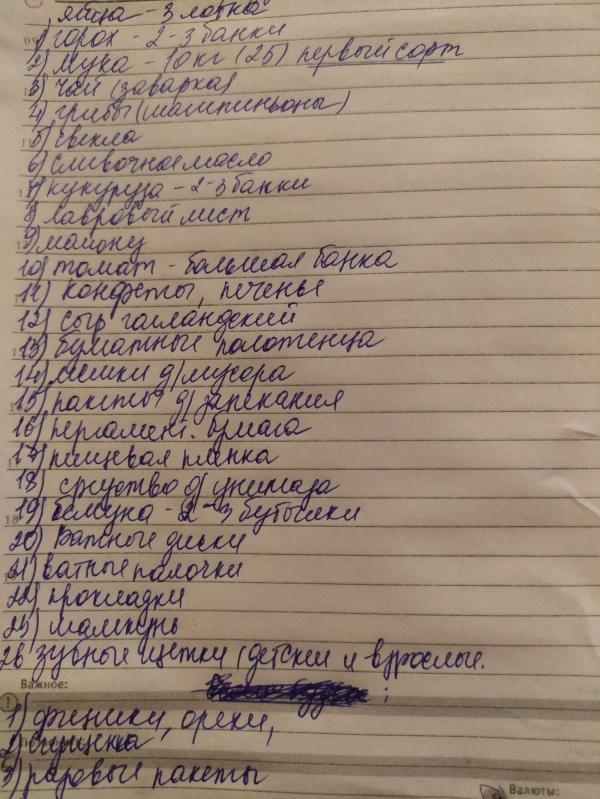 яйца - 3 лотка
1) горох - 2-3 банки
2) Мука - 10 кг (25) первый сорт
3) чай (заварка)
4) грибы (шампиньоны)
5) свекла
6) сливочное масло
7) кукуруза - 2-3 банки
8) лавровый лист
9) майонез
10) томат - большая банка
11) конфеты, печенье
12) сыр голландский
13) бумажные полотенца
14) мешки д/мусора
15) пакеты д/запекания
16) пергамент. бумага
17) пищевая пленка
18) средство д/унитаза
19) белизна - 2-3 бутылки
20) Ватные диски
21) ватные палочки
22) прокладки
23) шампунь
26 зубные щетки (детские и взрослые.
Важное:
1) финики, орехи,
2) сгущенка
3) разовые пакеты
Валюты: